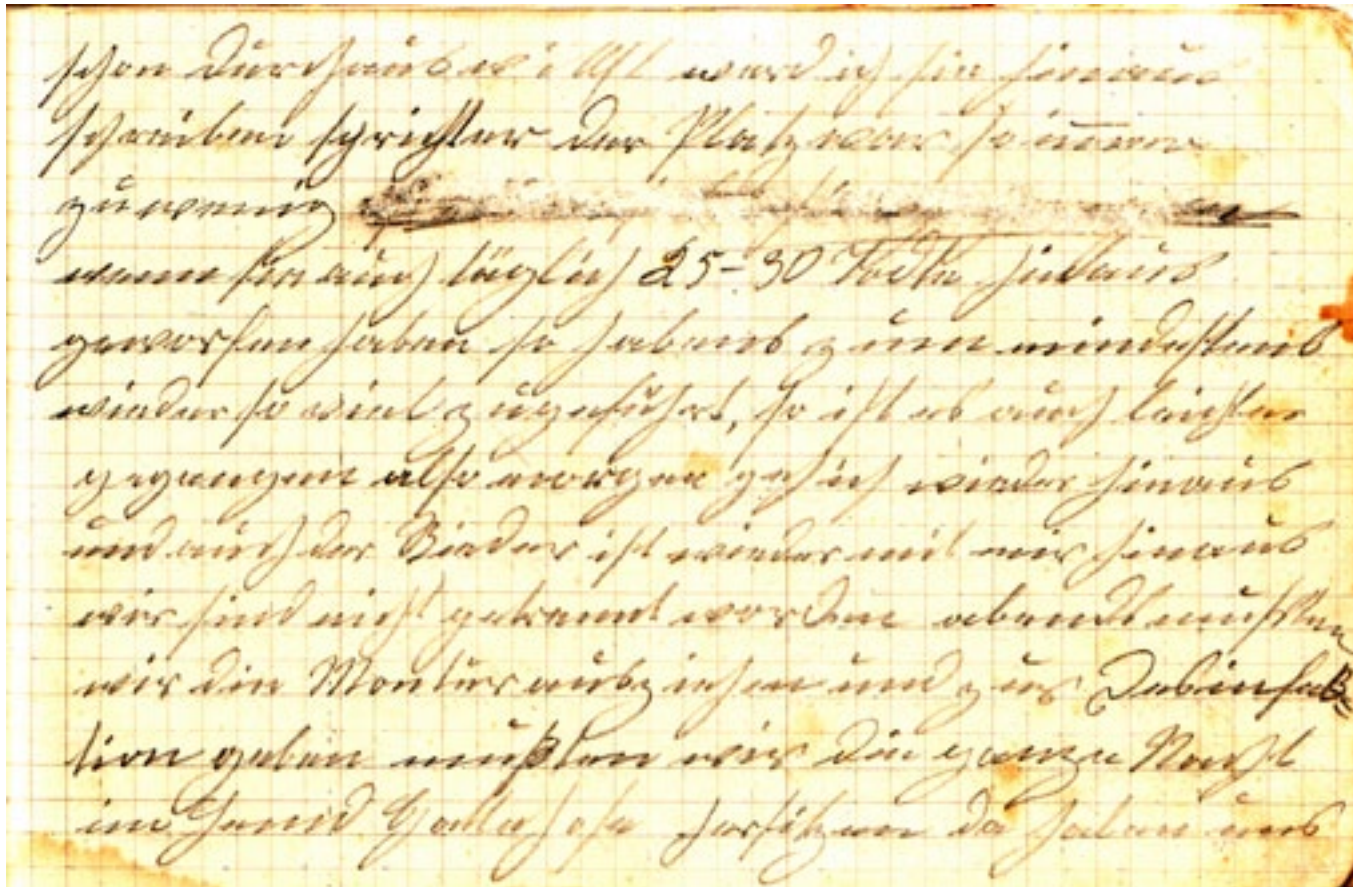 schon durchaus willst werd ich sie hinaus
schreiben spricht er der Platz war so immer
zu wenig
wenn sie auch täglich 25-30 Todte hinaus
geworfen haben so habens zum mindestens
wieder so viel zugeführt, so ist es auch leichter
gegangen also morgen geh ich wieder hinaus
und auch der Bieder ist wieder mit mir hinaus
wir sind nicht getrennt worden abends mußten
wir die Montur ausziehen und zur Desinfek-
tion geben mußten wir die ganze Nacht
im Hemd hersitzen da haben uns